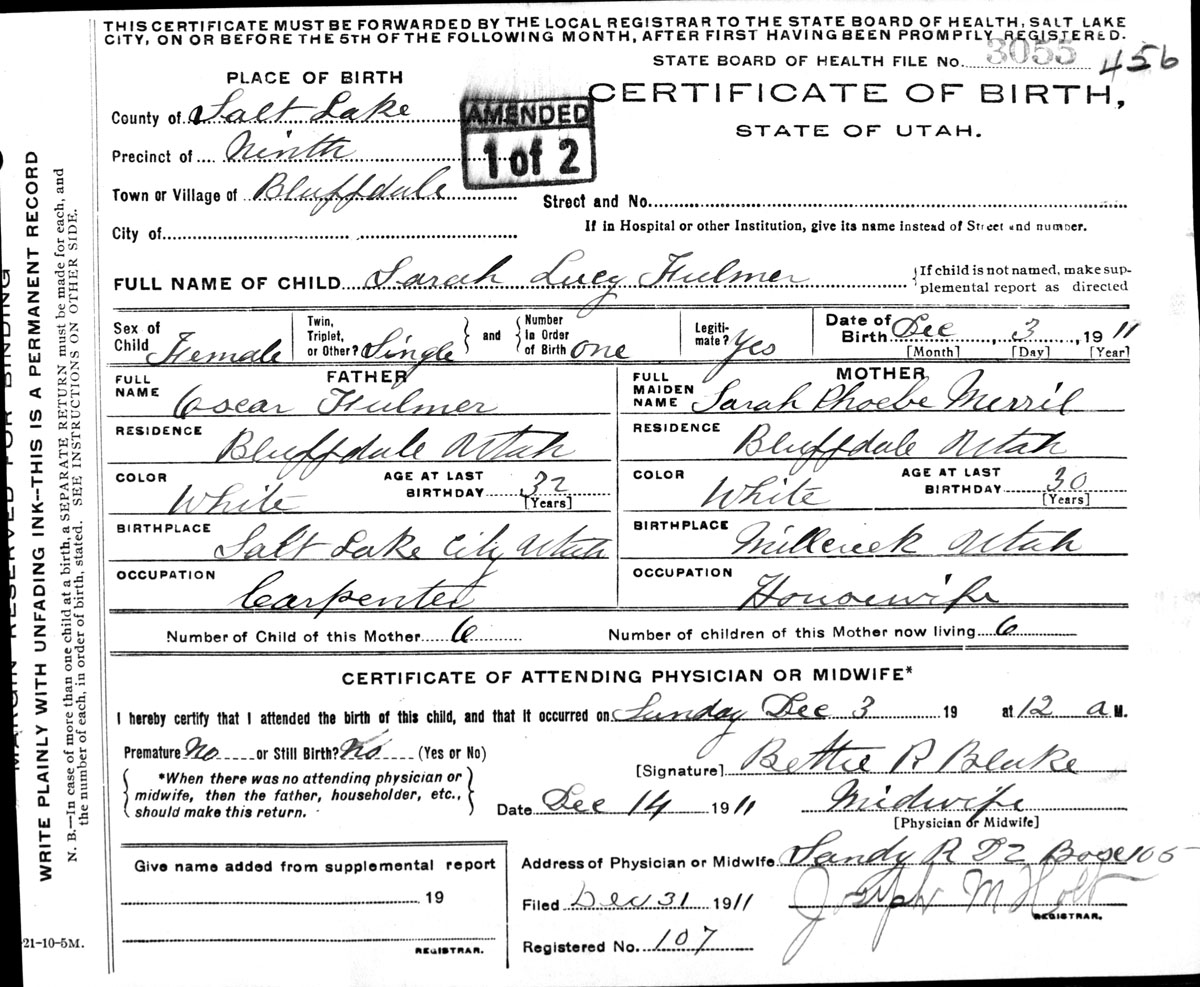 THIS CERTIFICATE MUST BE FORWARDED BY THE LOCAL REGISTRAR TO THE STATE BOARD OF HEALTH, SALT LAKE
CITY, ON OR BEFORE THE 5TH OF THE FOLLOWING MONTH, AFTER FIRST HAVING BEEN PROMPTLY REGISTERED.
STATE BOARD OF HEALTH FILE No. 3055 456
PLACE OF BIRTH
CERTIFICATE OF BIRTH,
STATE OF UTAH.
AMENDED
1 of 2
County of Salt Lake
Precinct of Ninth
Town or Village of Bluffdale
Street and No.
City of
If in Hospital or other Institution, give its name instead of Street and number.
FULL NAME OF CHILD Sarah Lucy Fulmer
If child is not named, make sup-
plemental report as directed
Sex of Child Female
Twin, Triplet, or Other? Single
and
Number in Order of Birth one
Legiti-mate? Yes
Date of Birth Dec 3, 1911
[Month] [Day] [Year]
FATHER
FULL NAME Oscar Fulmer
RESIDENCE Bluffdale Utah
COLOR White
AGE AT LAST BIRTHDAY 32
[Years]
BIRTHPLACE Salt Lake City Utah
OCCUPATION Carpenter
MOTHER
FULL MAIDEN NAME Sarah Phoebe Merril
RESIDENCE Bluffdale Utah
COLOR White
AGE AT LAST BIRTHDAY 30
[Years]
BIRTHPLACE Millcreek Utah
OCCUPATION Housewife
Number of Child of this Mother 6
Number of children of this Mother now living 6
CERTIFICATE OF ATTENDING PHYSICIAN OR MIDWIFE*
I hereby certify that I attended the birth of this child, and that it occurred on Sunday Dec 3 19 at 12 a M.
Premature No or Still Birth? No (Yes or No)
*When there was no attending physician or
midwife, then the father, householder, etc.,
should make this return.
[Signature] Bettie R Blake
Date Dec 14 1911
Midwife
[Physician or Midwife]
Give name added from supplemental report
19
REGISTRAR.
Address of Physician or Midwife Sandy R D 2 Box 105
Filed Dec 31 1911
Joseph M Holt
REGISTRAR.
Registered No. 107
21-10-5M.
MARGIN RESERVED FOR BINDING
WRITE PLAINLY WITH UNFADING INK--THIS IS A PERMANENT RECORD
N. B.—In case of more than one child at a birth, a SEPARATE RETURN must be made for each, and
the number of each, in order of birth, stated. SEE INSTRUCTIONS ON OTHER SIDE.